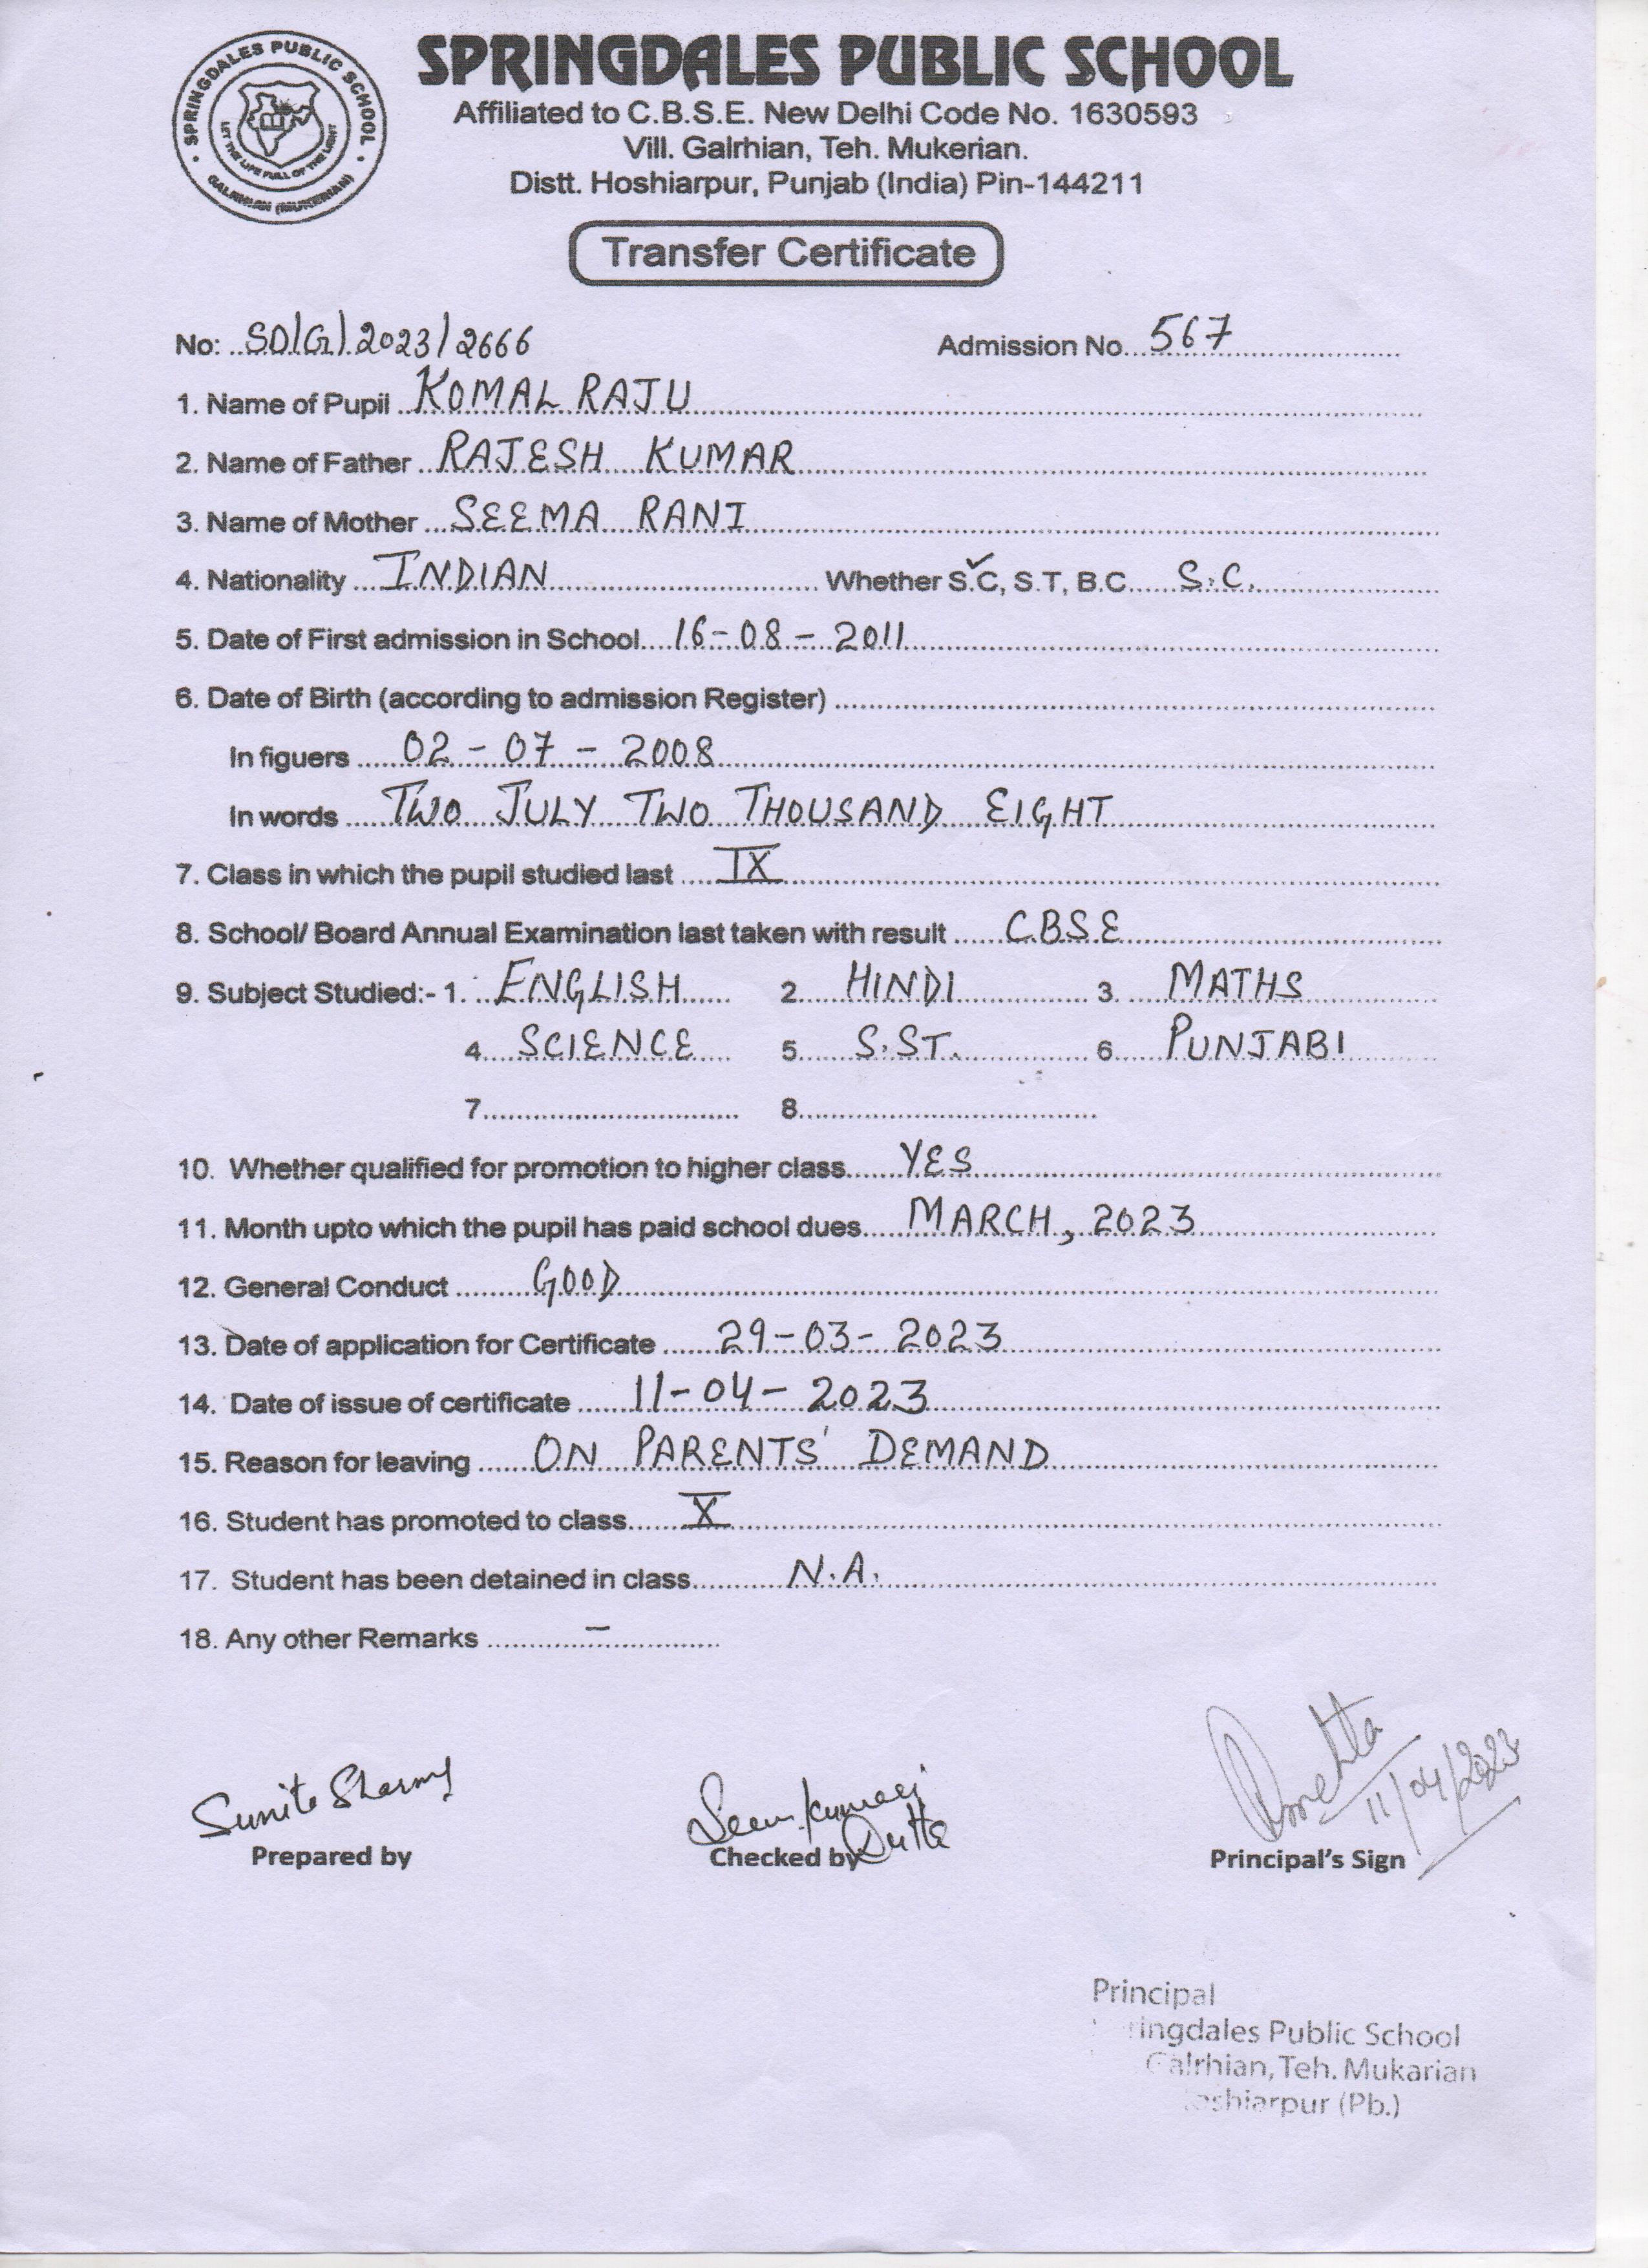 SPRINGDALES PUBLIC SCHOOL
GALRHIAN (MUKERIAN)
LET THE LIFE FULL OF THE LIGHT
SPRINGDALES PUBLIC SCHOOL
Affiliated to C.B.S.E. New Delhi Code No. 1630593
Vill. Galrhian, Teh. Mukerian.
Distt. Hoshiarpur, Punjab (India) Pin-144211
Transfer Certificate
No: SD/G/2023/2666 Admission No. 567
1. Name of Pupil KOMAL RAJU
2. Name of Father RAJESH KUMAR
3. Name of Mother SEEMA RANI
4. Nationality INDIAN Whether S.C, S.T, B.C. S.C.
5. Date of First admission in School 16-08-2011
6. Date of Birth (according to admission Register)
In figuers 02-07-2008
In words TWO JULY TWO THOUSAND EIGHT
7. Class in which the pupil studied last IX
8. School/ Board Annual Examination last taken with result CBSE
9. Subject Studied:- 1. ENGLISH 2. HINDI 3. MATHS
4. SCIENCE 5. S.ST. 6. PUNJABI
7. 8.
10. Whether qualified for promotion to higher class YES
11. Month upto which the pupil has paid school dues MARCH, 2023
12. General Conduct GOOD
13. Date of application for Certificate 29-03-2023
14. Date of issue of certificate 11-04-2023
15. Reason for leaving ON PARENTS' DEMAND
16. Student has promoted to class X
17. Student has been detained in class N.A.
18. Any other Remarks –
Sunita Sharma
11/04/2023
Prepared by Checked by Principal's Sign
Principal
ringdales Public School
Galrhian, Teh. Mukarian
oshiarpur (Pb.)